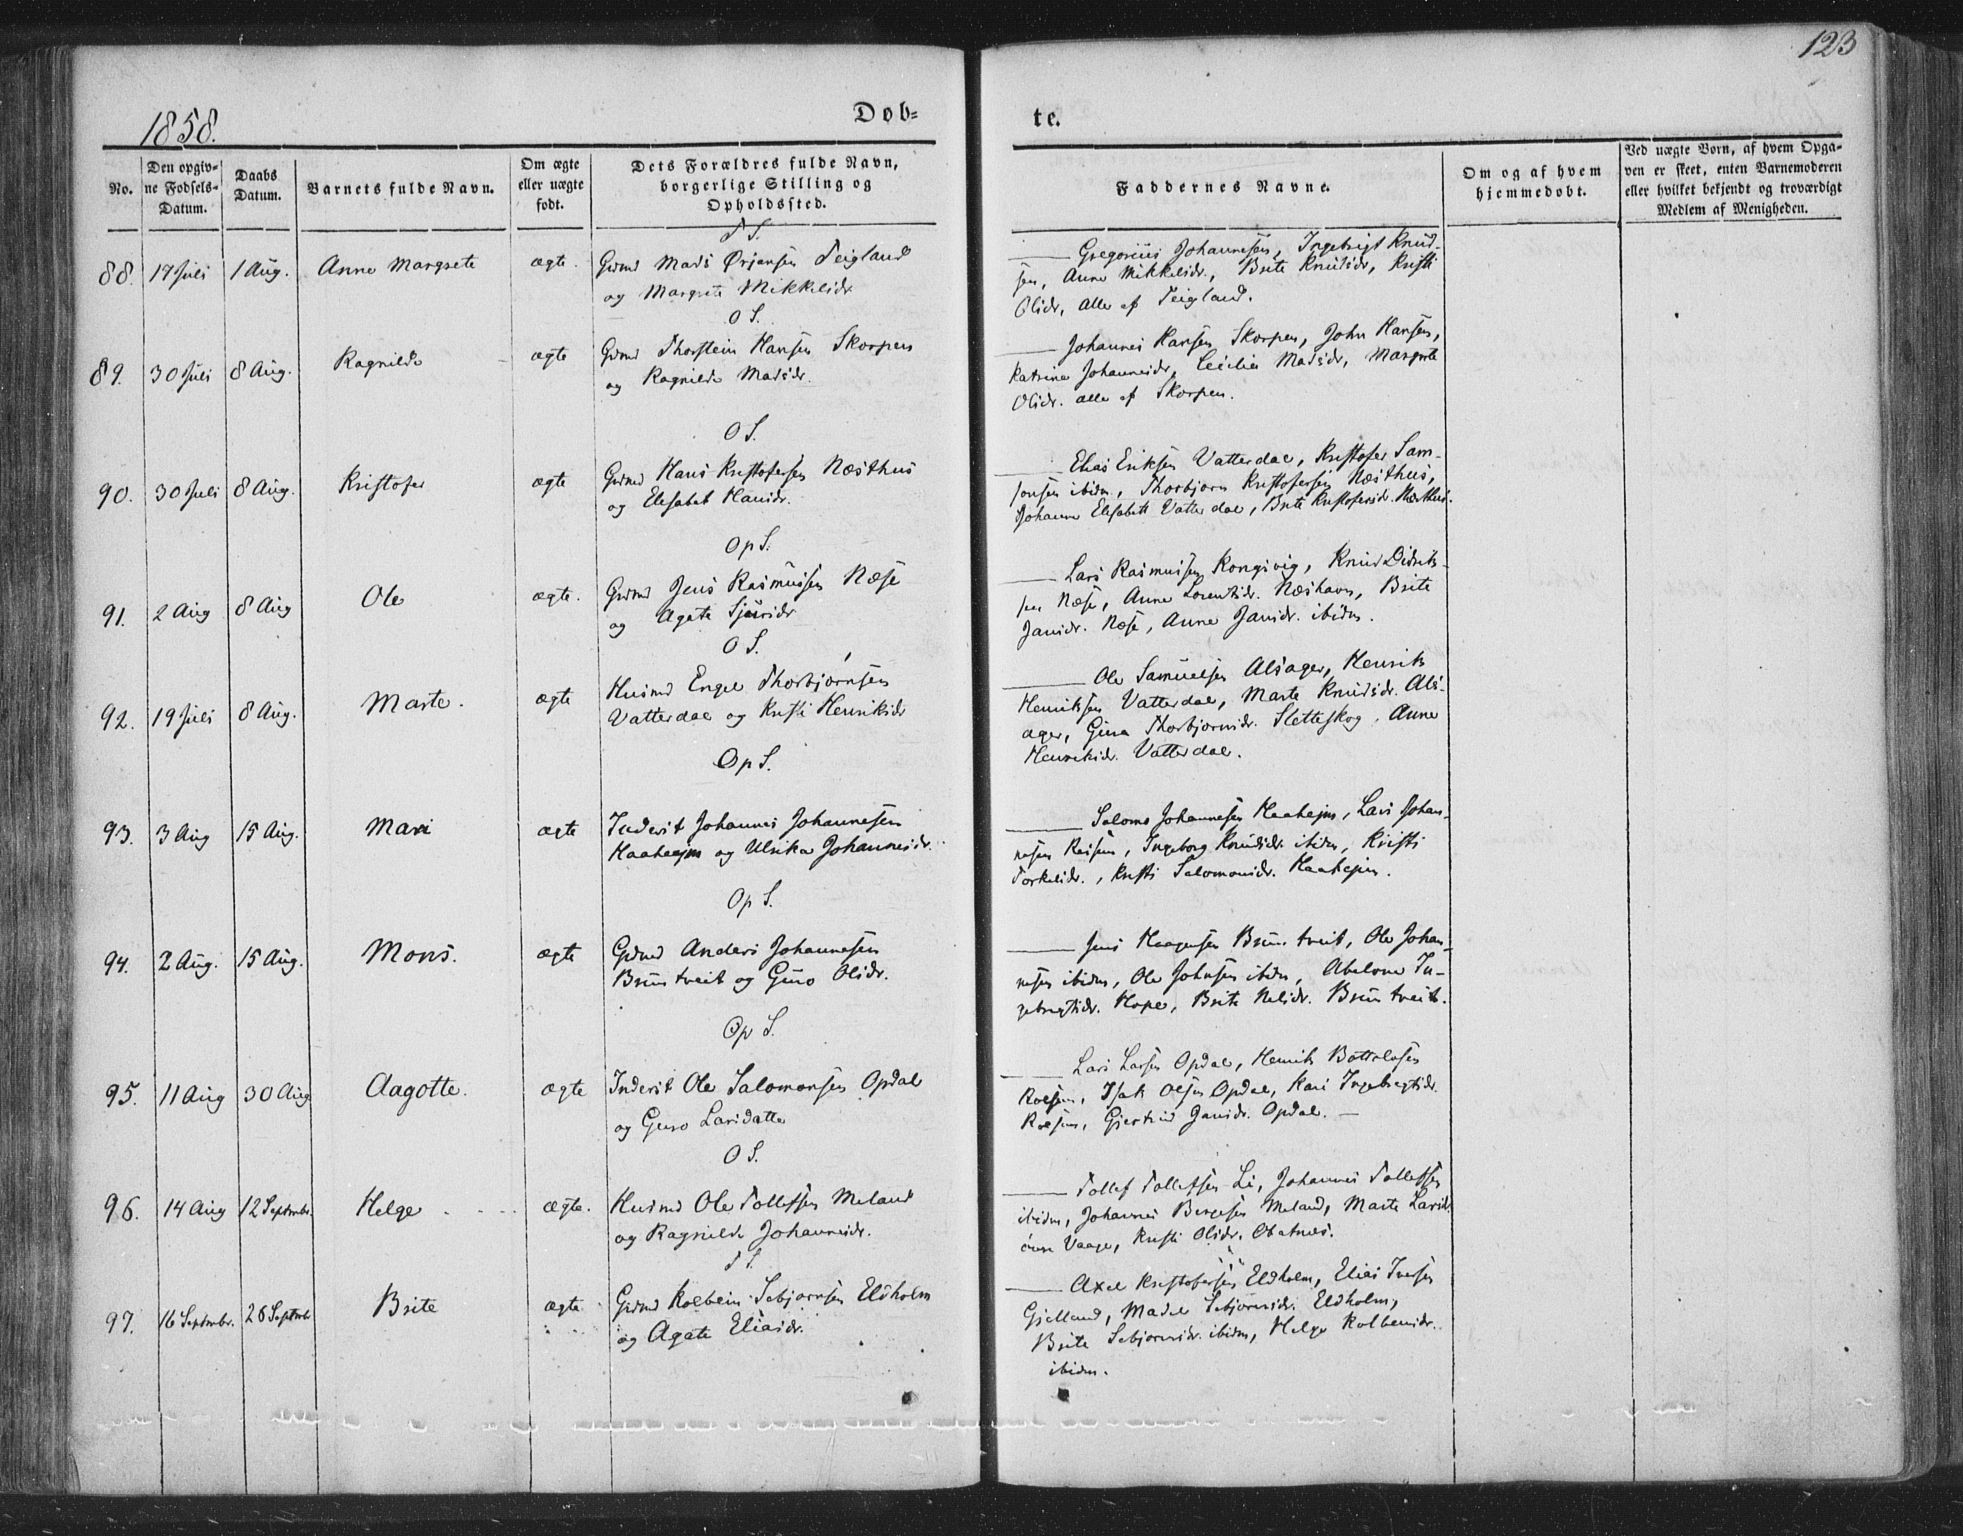 123
1858.
Døb=
te.
No.
Den opgiv-
ne Fødsels-
Datum.
Daabs
Datum.
Barnets fulde Navn.
Om ægte
eller uægte
født.
Dets Forældres fulde Navn,
borgerlige Stilling og
Opholdssted.
Faddernes Navne.
Om og af hvem
hjemmedøbt.
Ved uægte Børn, af hvem Opga-
ven er skeet, enten Barnemoderen
eller hvilket bekjendt og troværdigt
Medlem af Menigheden.
T S.
88. 17 Juli 1 Aug. Anne Margrete ægte. Grdmd Mads Ørjansen Teigland
og Margrete Mikkelsdr.
Gregorius Johannesen, Ingebrigt Knud-
sen, Anne Mikkelsdr., Brite Knudsdr, Kristi
Olsdr, alle af Teigland.
O S.
89. 30 Juli 8 Aug. Ragnilde ægte Grdmd Thorstein Hansen Skorpen
og Ragnilde Madsdr.
Johannes Hansen Skorpen, John Hansen,
Katrina Johannesdr, Cecilia Madsdr, Margrete
Olsdr. alle af Skorpen.
O S.
90. 30 Juli 8 Aug. Kristofer ægte Grdmd Hans Kristofersen Næsthus
og Elisabet Hansdr.
Elias Eriksen Vatterdal, Kristofer Sam-
sonsen ibidm, Thorbjørn Kristofersen Næsthus,
Johanne Elisabeth Vatterdal, Brite Kristofersdr. Næsthus.
Op S.
91. 2 Aug 8 Aug Ole ægte. Grdmd Jens Rasmussen Næse
og Agate Sjursdr
Lars Rasmussen Kongsvig, Knud Didrik-
sen Næse, Anne Lorentsdr. Næshavn, Brite
Jansdr. Næse, Anne Jansdr. ibidm.
O S.
92. 19 Juli 8 Aug. Marte. ægte Husmd Engel Thorbjørnsen
Vatterdal og Kristi Henriksdr
Ole Samuelsen Alsager, Henrik
Henriksen Vatterdal, Marte Knudsdr. Als-
ager, Gina Thorbjørnsdr. Sletteskog, Anne
Henriksdr. Vatterdal.
Op S.
93. 3 Aug 15 Aug. Mari ægte Inderst Johannes Johannesen
Haahejm og Ulrika Johannesdr.
Salomo Johannesen Haahejm, Lars Johan-
nesen Røisen, Ingeborg Knudsdr. ibidm, Kristi
Torkelsdr., Kristi Salomonsdr. Haahejm.
Op S.
94. 2 Aug. 15 Aug. Mons. ægte Grdmd Anders Johannesen
Bruntveit og Guro Olsdr.
Jens Haagensen Bruntveit, Ole Johan-
nesen ibidm, Ole Johnsen ibidm, Abelone In-
gebrigtsdr. Hope, Brite Nilsdr. Bruntveit.
Op S.
95. 11 Aug 30 Aug Aagotte. ægte Inderst Ole Salomonsen Opdal
og Guro Larsdatter
Lars Larsen Opdal, Henrik Bottolvsen
Isak Olsen Opdal, Kari Ingebrigtsdr.
Gjertrud Jansdr. Opdal.
O S.
96. 14 Aug 12 Septmbr. Helge ægte. Husmd Ole Tollefsen Meland
og Ragnilde Johannesdr.
Tollef Tollefsen Li, Johannes Tollefsen
ibidm, Johannes Børgesen Meland, Marte Larsdr
øvre Vaage, Kristi Olsdr.
T S.
97. 16 Septmbr. 26 Septmbr Brite ægte Grdmd Kolbein Sebjørnsen Eldholm
og Agate Eliasdr.
Axel Kristofersen Eldholm, Elias Iversen
Gjelland, Madel Sebjørnsdr. Eldholm,
Brite Sebjørnsdr. ibidm, Helge Kolbensdr.
ibidm.